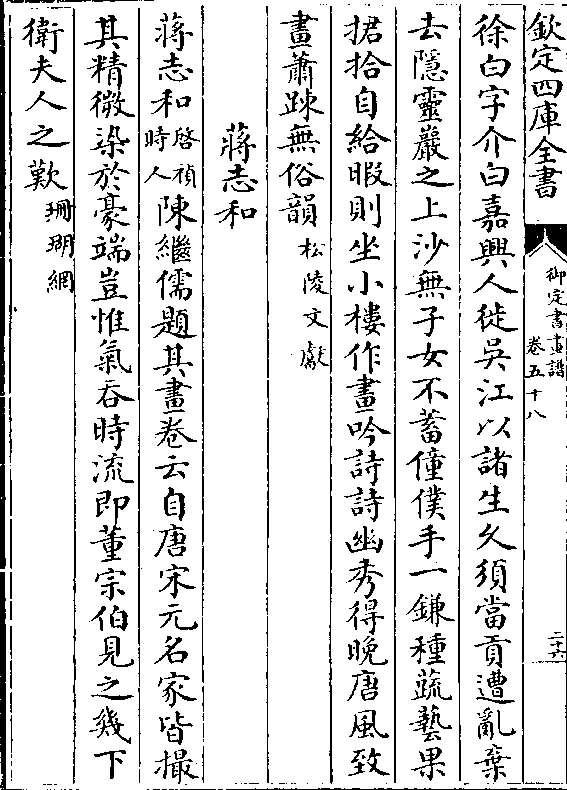 欽定四庫全書
御定書畫譜
卷五十八
二十六
徐白字介白嘉興人徙吳江以諸生久須當貢遭亂棄
去隱靈巖之上沙無子女不蓄僮僕手一鎌種蔬藝果
捃拾自給暇則坐小樓作畫吟詩詩幽秀得晚唐風致
畫蕭踈無俗韻松陵文獻
蔣志和
蔣志和啓禎時人陳繼儒題其畫卷云自唐宋元名家皆撮
其精微染於豪端豈惟氣吞時流即董宗伯見之幾下
衛夫人之歎珊瑚網